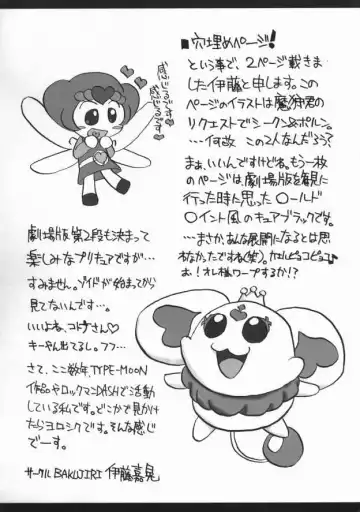 ■穴埋めページ!
という事で、2ページ載きま
した伊藤と申します。この
ページのイラストは魔神君の
リクエストでシークン&ポルン。
…何故 この2人なんだろう?
まぁ、いいんですけどね。もう一枚
のページは、劇場版を観に
行った時に思った〇ールド
〇イント風のキュアブラックです。
…まさか、あんな展開になるとは思
わなかったですね(笑)。
お!オレ様ワープするか!?
劇場版第2段も決まって
楽しみなプリキュアですが…
すみません。ゾイドが始まってから
見てないんです…。
いいよね、コトナさん♡
キーやん出てるし。フフ…
さて、ここ数年、TYPE-MOON
作品やロックマンDASHで活動
している私です。どこかで見かけ
たらヨロシクです。そんな感じ
でーす。
サークルBAKUJIRI 伊藤嘉晃